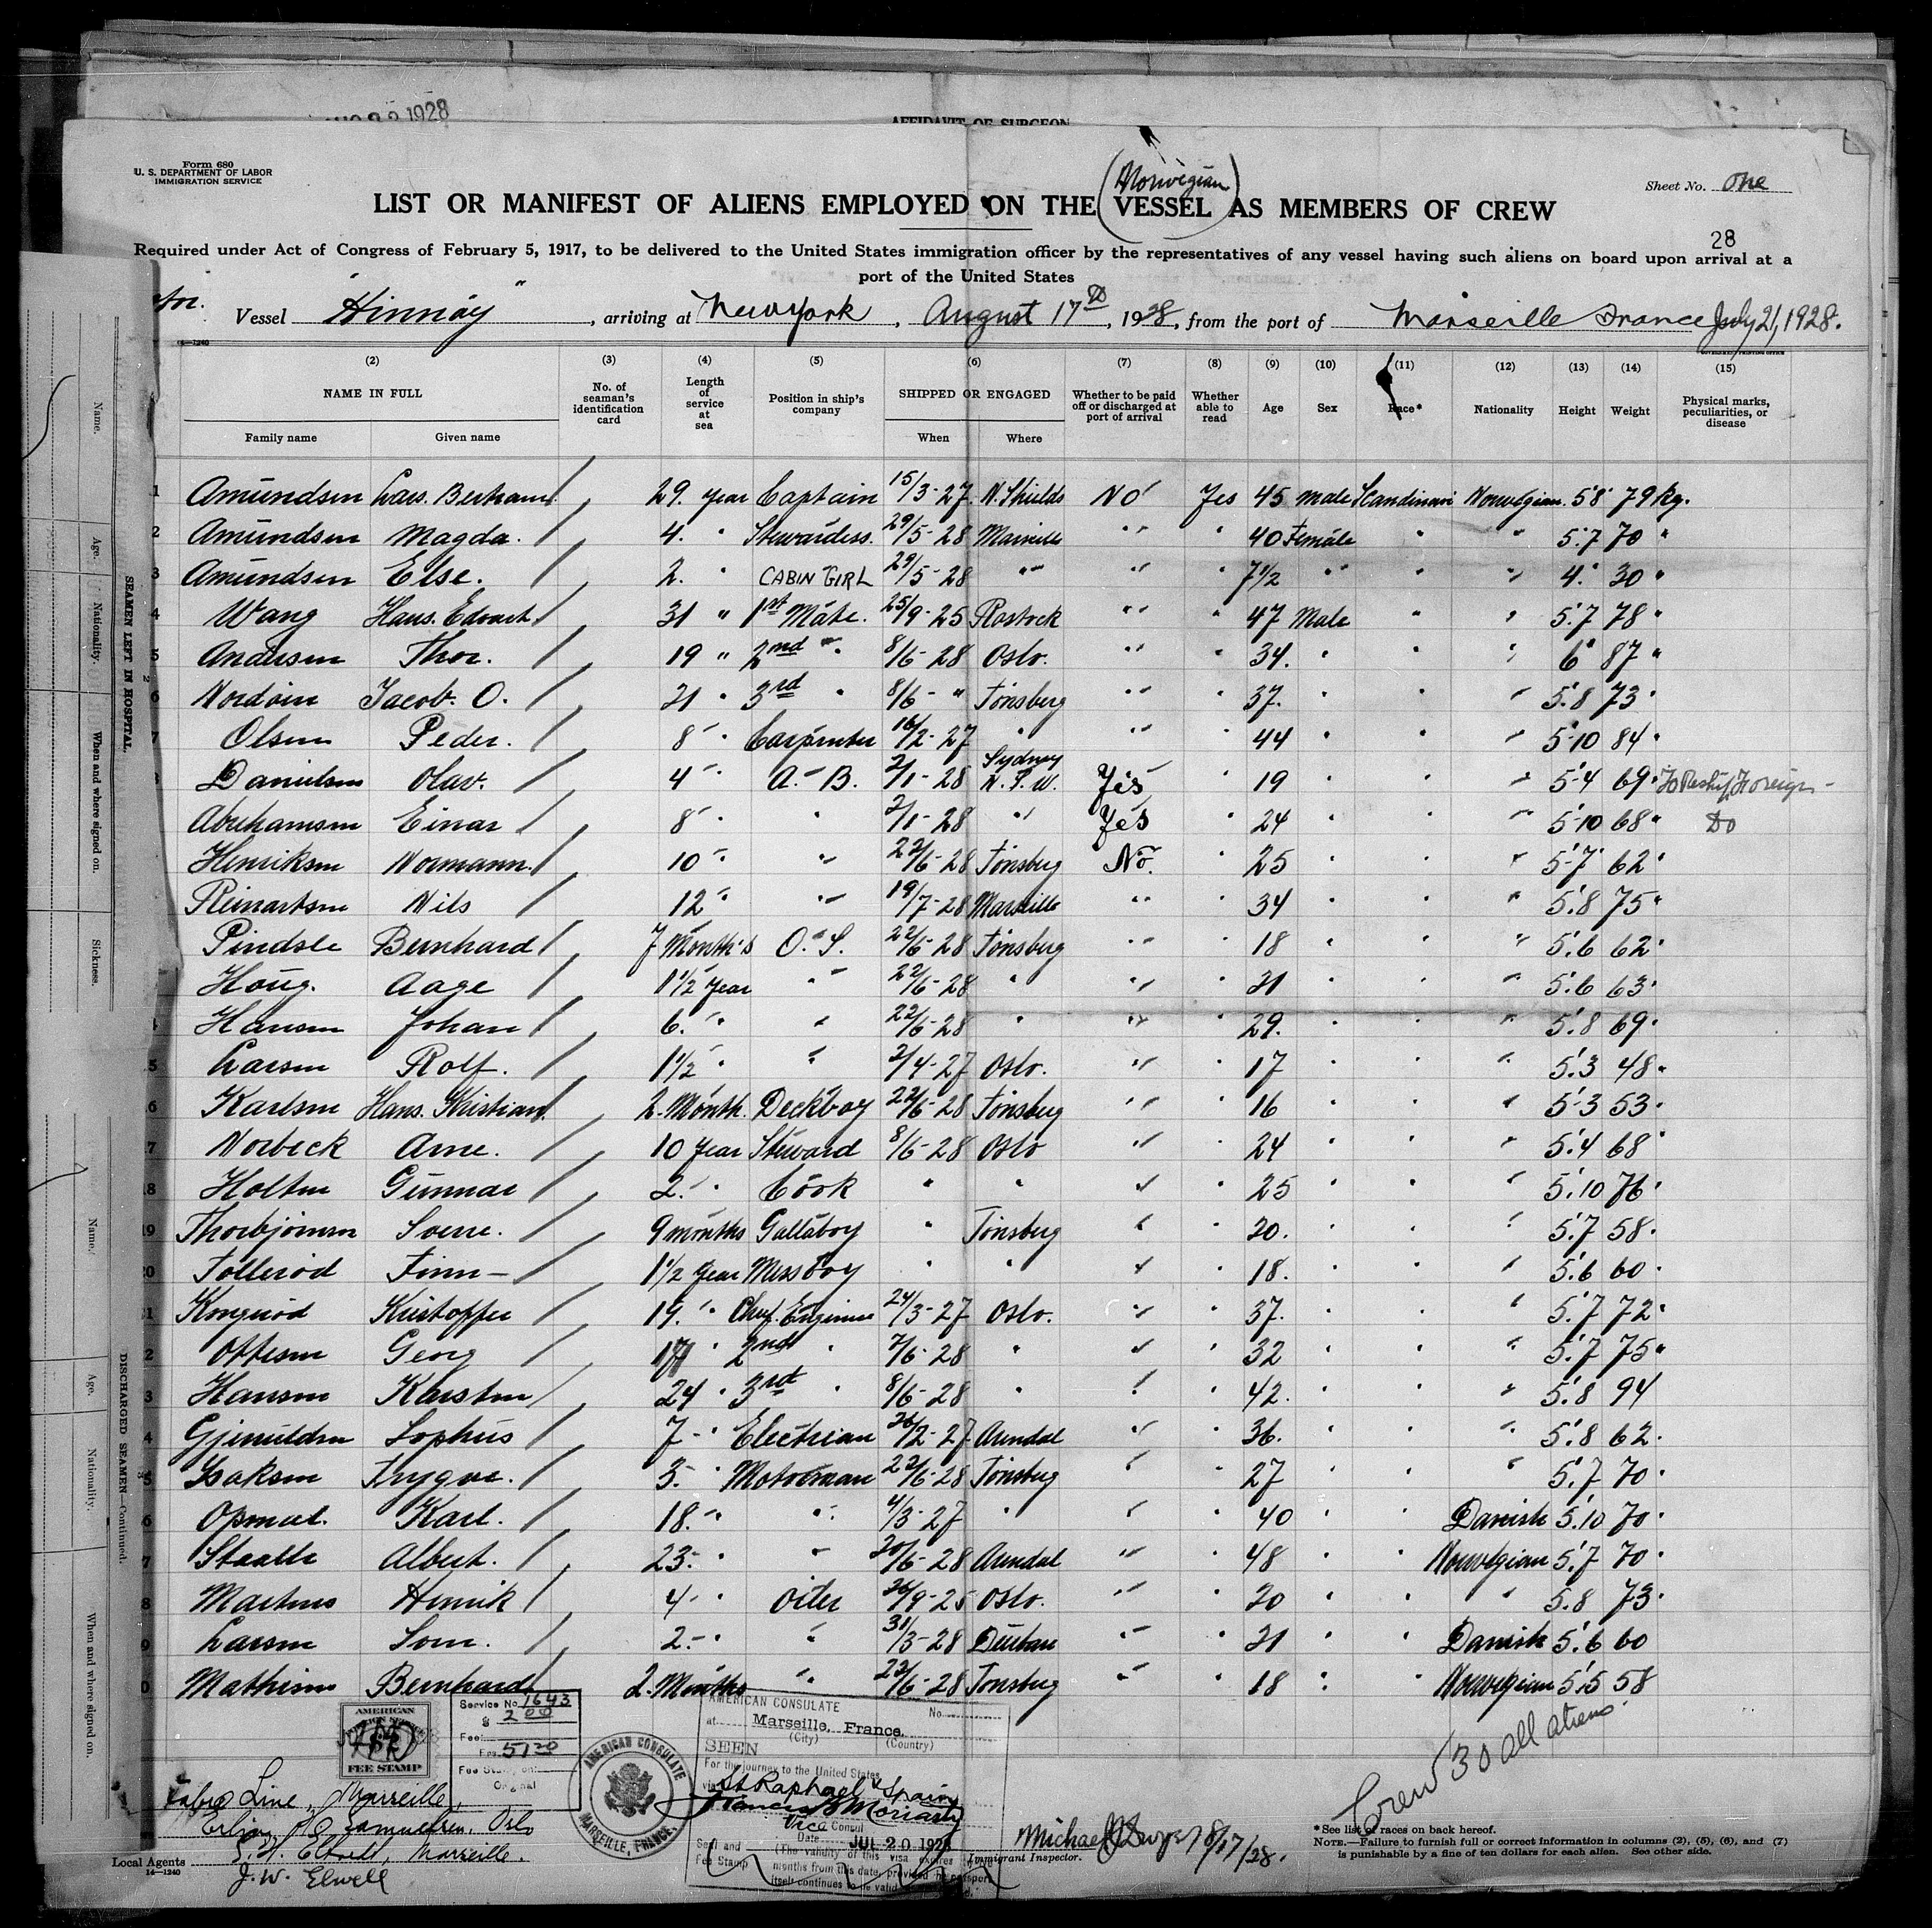 1928
AFFIDAVIT OF SURGEON
Form 680
U. S. DEPARTMENT OF LABOR
IMMIGRATION SERVICE
Sheet No. One
(Norwegian)
LIST OR MANIFEST OF ALIENS EMPLOYED ON THE VESSEL AS MEMBERS OF CREW
28
Required under Act of Congress of February 5, 1917, to be delivered to the United States immigration officer by the representatives of any vessel having such aliens on board upon arrival at a
port of the United States
Vessel "Hinnöy", arriving at New York, August 17th, 1928, from the port of Marseille France July 21, 1928.
14—1240
(2) (3) (4) (5) (6) (7) (8) (9) (10) (11) (12) (13) (14) (15)
NAME IN FULL No. of seaman's identification card Length of service at sea Position in ship's company SHIPPED OR ENGAGED Whether to be paid off or discharged at port of arrival Whether able to read Age Sex Race* Nationality Height Weight Physical marks, peculiarities, or disease
Family name Given name When Where
1 Amundsen Lars. Bertram 29. Year Captain 15/3-27 N. Shields No Yes 45 Male Scandinavi Norwegian 5'8 79 kg.
2 Amundsen Magda. 4. " Stewardess. 29/5-28 Marseille " " 40 Female " " 5.7 70 "
3 Amundsen Else. 2. " CABIN GIRL 29/5-28 " " " 7 1/2 " " " 4. 30 "
4 Wang Hans. Edvart 31 " 1st Mate. 25/9-25 Rostock " " 47 Male " " 5.7 78 "
5 Andersen Thor. 19 " 2nd " 8/6-28 Oslo. " " 34. " " " 6" 87 "
6 Jacob. O. 21 " 3rd " 8/6-" Tönsberg " " 37. " " " 5.8 73 "
7 Olsen Peder. 8 " Carpenter 16/2-27 " " " 44 " " " 5-10 84 "
8 Danielsen Olav. 4 " A-B. 2/1-28 Sydney N.S.W. Yes " 19 " " " 5-4 69 " To Reship Foreign -
Abrahamsen Einar 8 " " 2/1-28 " Yes " 24 " " " 5-10 68 " Do
Henriksen Normann. 10 " " 22/6-28 Tönsberg No. " 25 " " " 5-7 62 "
Reinartsen Nils 12 " " 19/7-28 Marseille " " 34 " " " 5.8 75 "
Pindsle Bernhard 7 Month's O.S. 22/6-28 Tönsberg " " 18 " " " 5.6 62 "
Houg. Aage 1 1/2 Year " 22/6-28 " " " 21 " " " 5.6 63 "
Hansen Johan 6. " " 22/6-28 " " " 29. " " " 5.8 69 "
5 Larsen Rolf. 1 1/2 " " 2/4-27 Oslo. " " 17 " " " 5.3 48 "
6 Karlsen Hans. Kristian. 2. Month. Deckboy 22/6-28 Tönsberg " " 16 " " " 5-3 53 "
7 Norbeck Arne. 10 Year Steward 8/6-28 Oslo " " 24 " " " 5.4 68 "
18 Holten Gunnar 2. " Cook " " " " 25 " " " 5.10 76 "
19 Thorbjörnsen Sverre. 9 months Gallaboy " Tönsberg " " 20. " " " 5.7 58 "
20 Tollerød Finn - 1 1/2 Year Messboy " " " " 18. " " " 5.6 60 "
21 Kristoffer 19. " Chief. Engineer 24/3-27 Oslo. " " 37. " " " 5.7 72 "
2 Ottesen Georg 17 " 2nd " 7/6-28 " " " 32 " " " 5.7 75 "
3 Hansen Karsten 24 " 3rd " 8/6-28 " " " 42. " " " 5.8 94
4 Sophus 7 - " Electrian 26/2-27 Arendal " " 36. " " " 5.8 62 "
5 Isaksen Trygve. 3. " Motorman 22/6-28 Tönsberg " " 27 " " " 5.7 70 "
6 Karl. 18. " " 4/3-27 " " " 40 " " Danish 5.10 70 "
7 Albert. 23. " " 20/6-28 Arendal " " 48 " " Norwegian 5.7 70 "
8 Martens Henrik 4 " Oiler 26/9-25 Oslo. " " 20 " " " 5.8 73 "
9 Larsen 2. " " 31/3-28 Durban " " 21 " " Danish 5.6 60
0 Mathisen Bernhard 2. Months " 22/6-28 Tonsberg " " 18 " " Norwegian 5.5 58
AMERICAN
FOREIGN SERVICE
FEE STAMP
Service No. 1643
$ 2.00
Fee:
Frs. 51 20
Fee Stamp on:
Original
AMERICAN CONSULATE
MARSEILLE, FRANCE.
AMERICAN CONSULATE
No.
at Marseille, France.
(City) (Country)
SEEN
For the journey to the United States
via St Raphael & Spain
Francis B Moriarty
Vice Consul
Date JUL 20 1928
Seal and Fee Stamp
(The validity of this visa expires
months from this date, provided the passport
itself continues to be valid
Crew 30 all aliens
Fabre Line, Marseille,
Oslo
Marseille.
J. W. Elwell
Local Agents
14—1240
8/17/28.
Immigrant Inspector.
*See list of races on back hereof.
NOTE.—Failure to furnish full or correct information in columns (2), (5), (6), and (7)
is punishable by a fine of ten dollars for each alien. See other side.
SEAMEN LEFT IN HOSPITAL.
Name.
Age.
Nationality.
When and where signed on.
Sickness.
DISCHARGED SEAMEN—Continued.
Name.
Age.
Nationality.
When and where signed on.